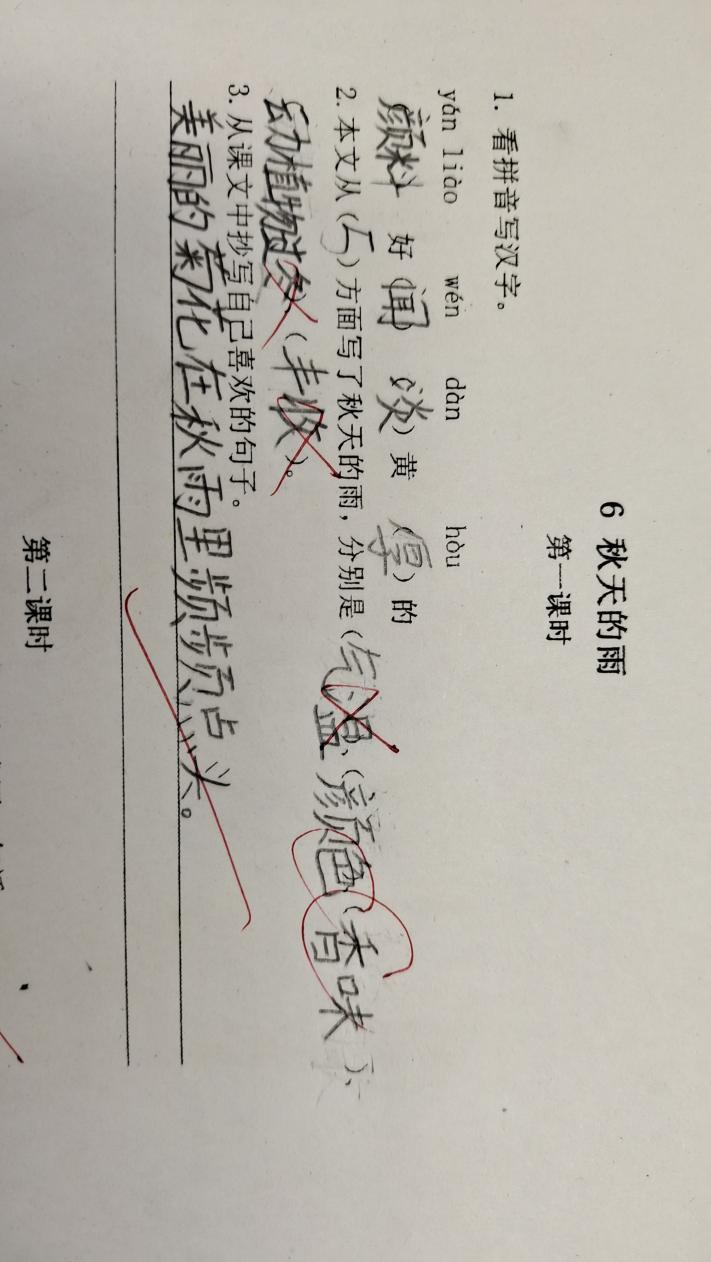 6 秋天的雨
第一课时
1. 看拼音写汉字。
yán liào wén dàn hòu
颜料 好(闻) (淡)黄 (厚)的
2. 本文从(五)方面写了秋天的雨，分别是(气温)、(颜色)、(香味)、
(动植物过冬)、(丰收)。
3. 从课文中抄写自己喜欢的句子。
美丽的菊花在秋雨里频频点头。
第二课时